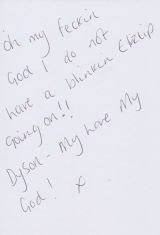 oh my feckin
God I do not
have a blinkin
going on!!
Dyson - My love My
God! x